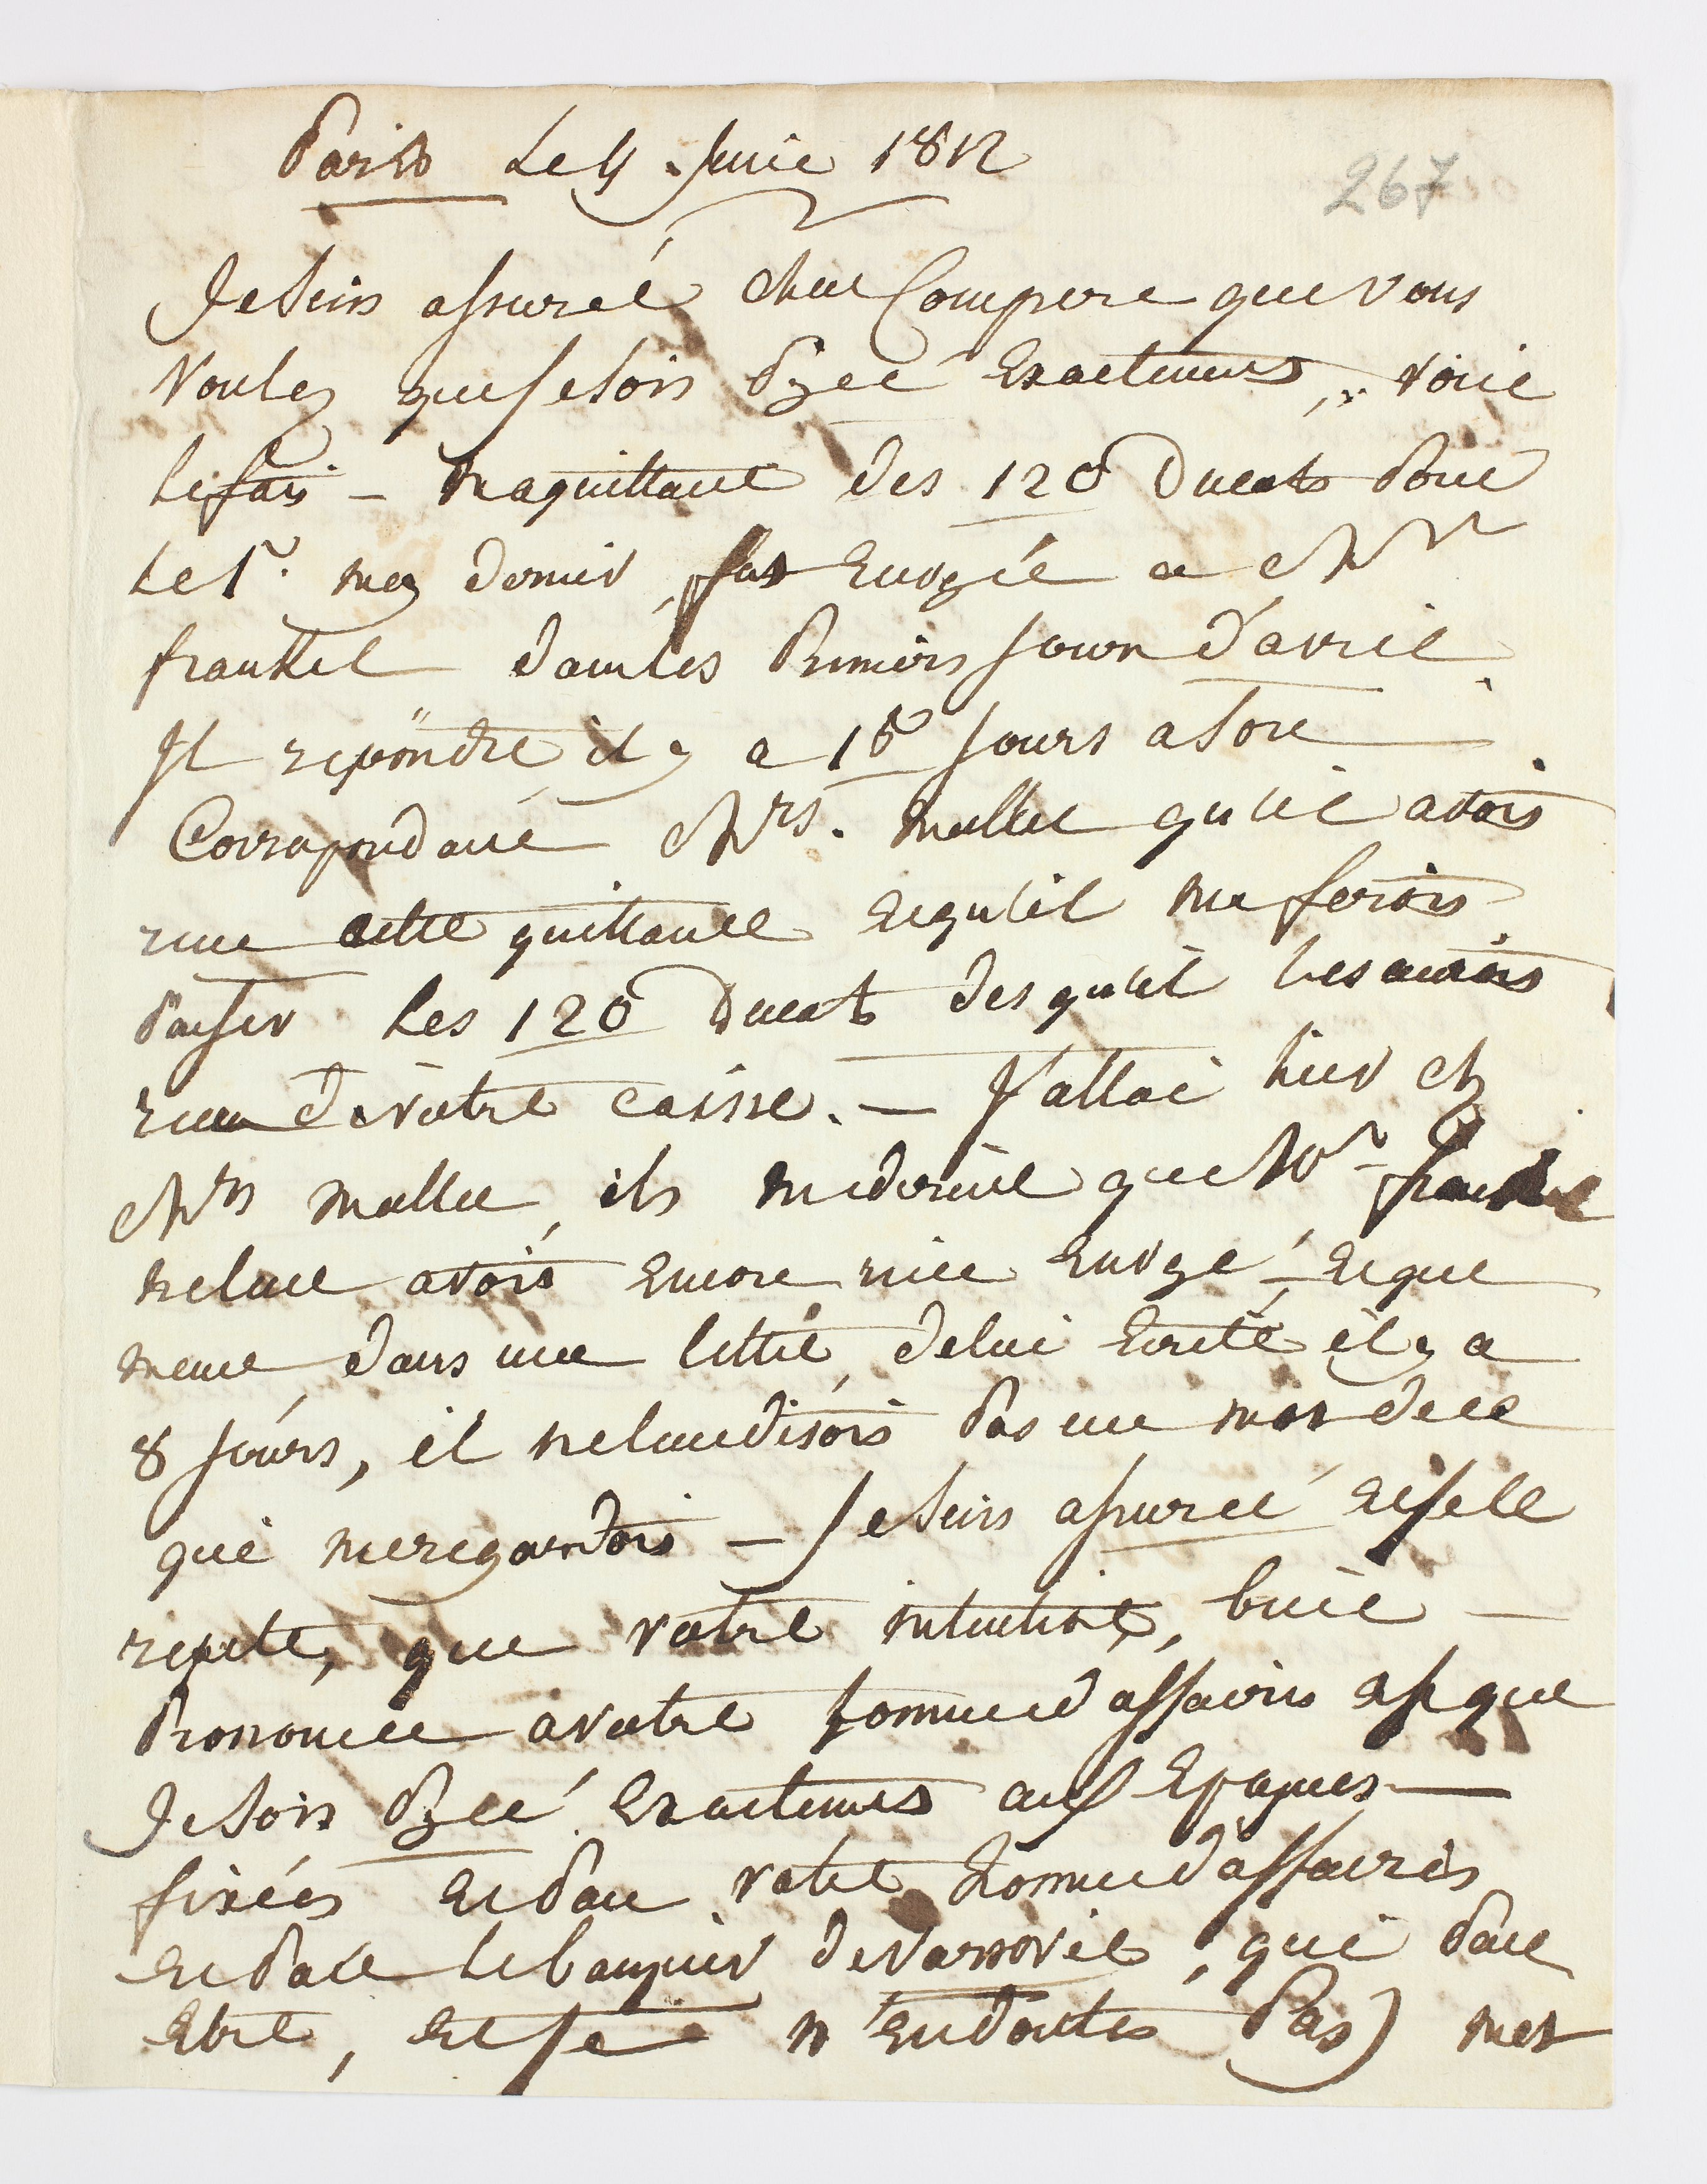 Paris Le 4 Juin 1812
267
Je suis assureé cher Compere que vous
voulez que je sois payeé Exactement, voici
le fait — ma quittance des 120 Ducats pour
Le 1r. may dernier, fut Envoyée a Mr
frankel dans les premiers jours d'avril
Il repondit il y a 15 jours a son
Correspondant Mrs. mallet qu'il avois
recu cette quittance et qu'il me ferois
passer les 120 Ducats des qu'il les aurois
recu de votre caisse. — J'allai hier chez
Mrs mallet, ils me dirent que Mr. frankel
ne leur avois encore rien Envoyé, et que
meme dans une lettre de lui Ecrite il y a
8 jours, il ne leur disois pas un mot de ce
qui me regardois — Je suis assureé et je le
repete, que votre intention, bien —
prononcee a votre homme d'affaires est que
Je sois payeé Exactement aux Epoques
fixées et par votre homme d'affaires
et par le banquier de Varsovie, qui peut
Etre, et je n'en doute pas) met